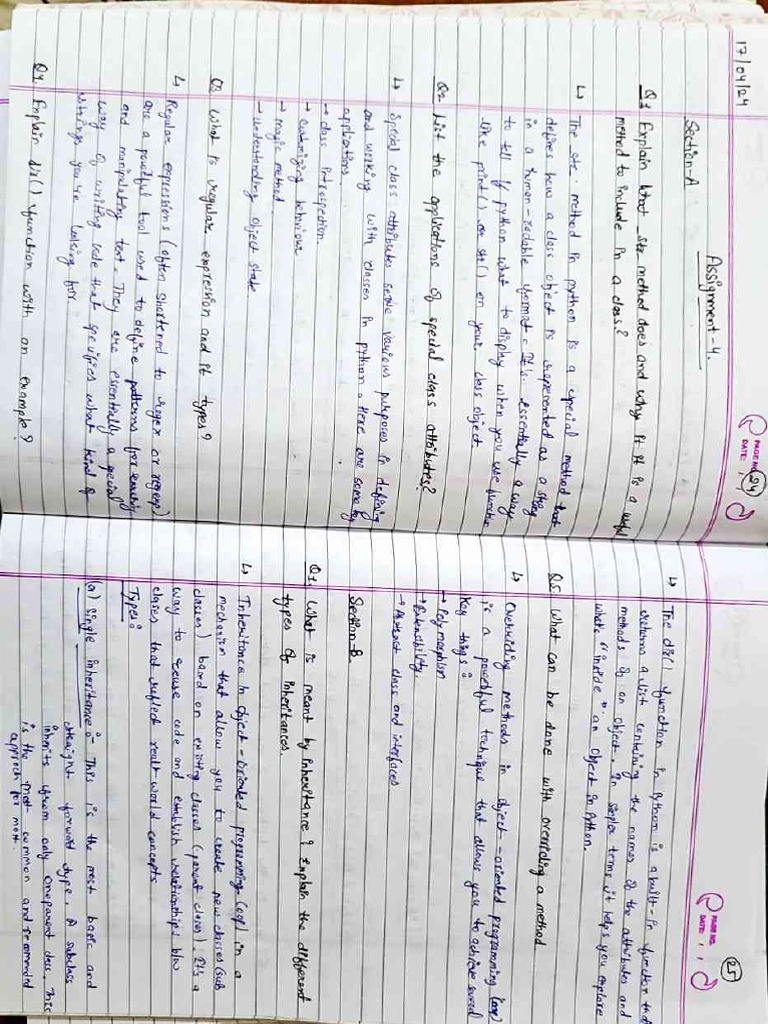 17/04/24
PAGE NO. 24
DATE:
Assignment-4.
Section-A
Q1 Explain what _str method does and why it it is a useful
method to include in a class?
↳ The _str_ method in python is a special method that
defines how a class object is represented as a string
in a human-redable format. It's essentially a way
to tell if python what to display when you use function
like print() or str() on your class object.
Q2 List the applications of special class attributes?
↳ Special class attributes serve various purposes in defining
and working with classes in python. Here are some key
applications.
→ class intrspection.
→ customizing behaviour
→ magic method.
→ understanding object state.
Q3 What is regular expression and it types?
↳ Regular expressions (often shortened to regex or regexp)
are a powerful tool used to define patterns for searching
and manipulating text. They are essentially a special
way of writing code that specifies what kind of
strings you're looking for.
Q4 Explain dir() function with an example?
PAGE NO. 25
DATE: / /
↳ The dir() function in Python is a built-in function that
returns a list containing the names of the attributes and
methods of an object. In simpler terms it helps you explore
what's "inside" an object in Python.
Q5 What can be done with overriding a method.
↳ Overriding methods in object-oriented programming (oop)
is a powerful technique that allows you to achieve several
key things:
→ Polymorphism
→ Extensibility.
→ Abstract class and interfaces
Section-B
Q1. What is meant by inheritance? Explain the different
types of inheritances.
↳ Inheritance in object-oriented programming (oop) is a
mechanism that allow you to create new classes (sub
classes) based on existing classes (parent classes). It's a
way to reuse code and establish relationships b/w
classes that reflect real-world concepts
Types:
(a) Single inheritance:- This is the most basic and
straight forward type. A subclass
inherits from only one parent class. This
is the most common and recommended
approach for most.